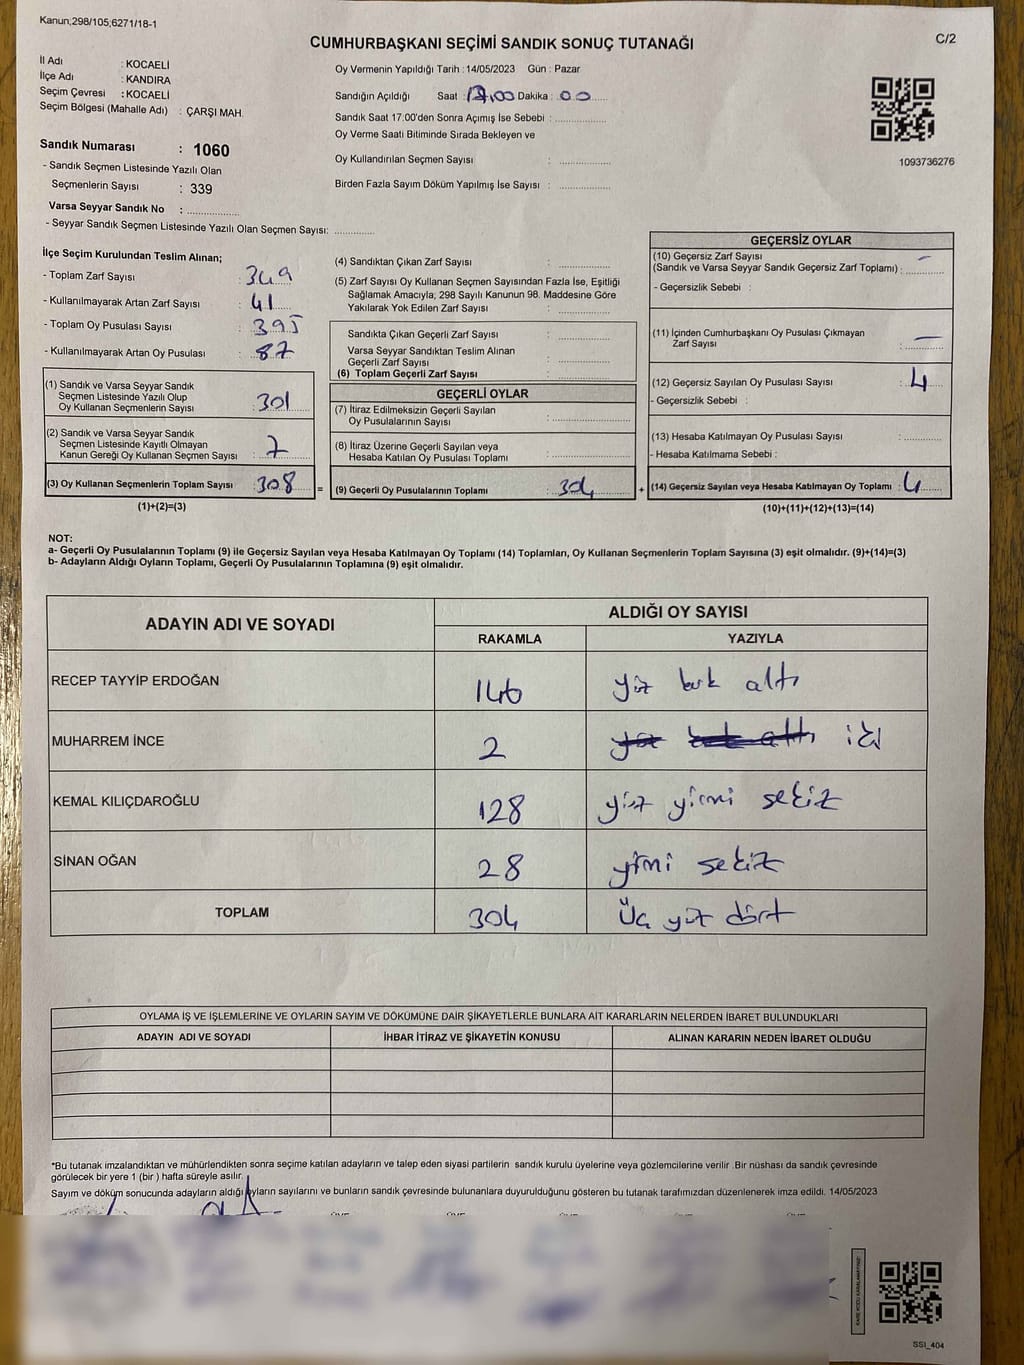 Kanun;298/105;6271/18-1
C/2
CUMHURBAŞKANI SEÇİMİ SANDIK SONUÇ TUTANAĞI
İl Adı : KOCAELİ
İlçe Adı : KANDIRA
Seçim Çevresi : KOCAELİ
Seçim Bölgesi (Mahalle Adı) : ÇARŞI MAH.
Sandık Numarası : 1060
- Sandık Seçmen Listesinde Yazılı Olan
Seçmenlerin Sayısı : 339
Varsa Seyyar Sandık No :
- Seyyar Sandık Seçmen Listesinde Yazılı Olan Seçmen Sayısı:
Oy Vermenin Yapıldığı Tarih : 14/05/2023 Gün : Pazar
Sandığın Açıldığı Saat : 17,00 Dakika : 00
Sandık Saat 17:00'den Sonra Açımış İse Sebebi :
Oy Verme Saati Bitiminde Sırada Bekleyen ve
Oy Kullandırılan Seçmen Sayısı :
Birden Fazla Sayım Döküm Yapılmış İse Sayısı :
1093736276
İlçe Seçim Kurulundan Teslim Alınan;
- Toplam Zarf Sayısı : 349
- Kullanılmayarak Artan Zarf Sayısı : 41
- Toplam Oy Pusulası Sayısı : 395
- Kullanılmayarak Artan Oy Pusulası : 87
(1) Sandık ve Varsa Seyyar Sandık
Seçmen Listesinde Yazılı Olup
Oy Kullanan Seçmenlerin Sayısı : 301
(2) Sandık ve Varsa Seyyar Sandık
Seçmen Listesinde Kayıtlı Olmayan
Kanun Gereği Oy Kullanan Seçmen Sayısı : 7
(3) Oy Kullanan Seçmenlerin Toplam Sayısı : 308
(1)+(2)=(3)
(4) Sandıktan Çıkan Zarf Sayısı :
(5) Zarf Sayısı Oy Kullanan Seçmen Sayısından Fazla İse, Eşitliği
Sağlamak Amacıyla; 298 Sayılı Kanunun 98. Maddesine Göre
Yakılarak Yok Edilen Zarf Sayısı :
Sandıkta Çıkan Geçerli Zarf Sayısı :
Varsa Seyyar Sandıktan Teslim Alınan
Geçerli Zarf Sayısı :
(6) Toplam Geçerli Zarf Sayısı :
GEÇERLİ OYLAR
(7) İtiraz Edilmeksizin Geçerli Sayılan
Oy Pusulalarının Sayısı :
(8) İtiraz Üzerine Geçerli Sayılan veya
Hesaba Katılan Oy Pusulası Toplamı :
= (9) Geçerli Oy Pusulalarının Toplamı : 304 +
GEÇERSİZ OYLAR
(10) Geçersiz Zarf Sayısı –
(Sandık ve Varsa Seyyar Sandık Geçersiz Zarf Toplamı) :
- Geçersizlik Sebebi :
(11) İçinden Cumhurbaşkanı Oy Pusulası Çıkmayan
Zarf Sayısı : –
(12) Geçersiz Sayılan Oy Pusulası Sayısı : 4
- Geçersizlik Sebebi :
(13) Hesaba Katılmayan Oy Pusulası Sayısı :
- Hesaba Katılmama Sebebi :
(14) Geçersiz Sayılan veya Hesaba Katılmayan Oy Toplamı : 4
(10)+(11)+(12)+(13)=(14)
NOT:
a- Geçerli Oy Pusulalarının Toplamı (9) ile Geçersiz Sayılan veya Hesaba Katılmayan Oy Toplamı (14) Toplamları, Oy Kullanan Seçmenlerin Toplam Sayısına (3) eşit olmalıdır. (9)+(14)=(3)
b- Adayların Aldığı Oyların Toplamı, Geçerli Oy Pusulalarının Toplamına (9) eşit olmalıdır.
ADAYIN ADI VE SOYADI
ALDIĞI OY SAYISI
RAKAMLA YAZIYLA
RECEP TAYYİP ERDOĞAN 146 yüz kırk altı
MUHARREM İNCE 2 yüz kırk altı iki
KEMAL KILIÇDAROĞLU 128 yüz yirmi sekiz
SİNAN OĞAN 28 yirmi sekiz
TOPLAM 304 Üç yüz dört
OYLAMA İŞ VE İŞLEMLERİNE VE OYLARIN SAYIM VE DÖKÜMÜNE DAİR ŞİKAYETLERLE BUNLARA AİT KARARLARIN NELERDEN İBARET BULUNDUKLARI
ADAYIN ADI VE SOYADI İHBAR İTİRAZ VE ŞİKAYETİN KONUSU ALINAN KARARIN NEDEN İBARET OLDUĞU
*Bu tutanak imzalandıktan ve mühürlendikten sonra seçime katılan adayların ve talep eden siyasi partilerin sandık kurulu üyelerine veya gözlemcilerine verilir .Bir nüshası da sandık çevresinde
görülecek bir yere 1 (bir ) hafta süreyle asılır.
Sayım ve döküm sonucunda adayların aldığı oyların sayılarını ve bunların sandık çevresinde bulunanlara duyurulduğunu gösteren bu tutanak tarafımızdan düzenlenerek imza edildi. 14/05/2023
SSI_404